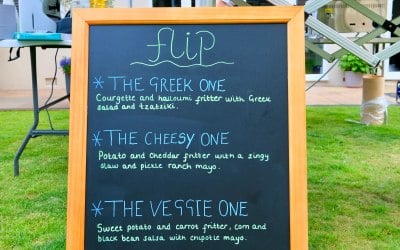 flip
* THE GREEK ONE
Courgette and halloumi fritter with Greek
salad and tzatziki.
* THE CHEESY ONE
Potato and Cheddar fritter with a zingy
slaw and pickle ranch mayo.
* THE VEGGIE ONE
Sweet potato and carrot fritter, corn and
black bean salsa with chipotle mayo.